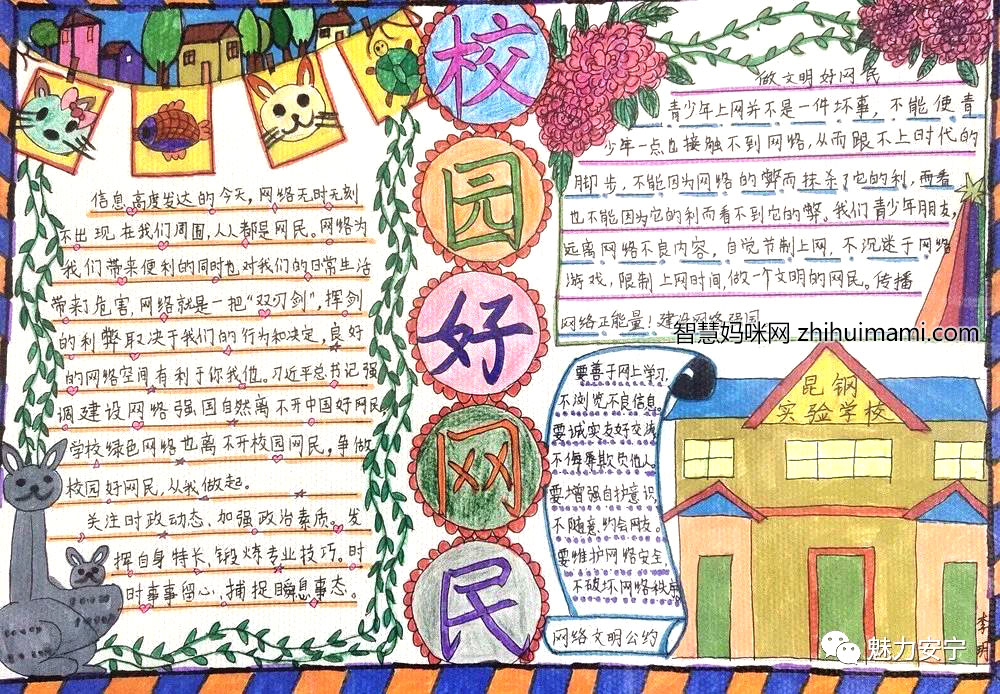 校园好网民
信息高度发达的今天，网络无时无刻
不出现在我们周围，人人都是网民。网络为
我们带来便利的同时也对我们的日常生活
带来了危害，网络就是一把“双刃剑”，挥剑
的利弊取决于我们的行为和决定，良好
的网络空间有利于你我他。习近平总书记强
调建设网络强国自然离不开中国好网民
学校绿色网络也离不开校园网民，争做
校园好网民，从我做起。
关注时政动态、加强政治素质。发
挥自身特长、锻炼专业技巧。时
时事事留心、捕捉瞬息事态。
做文明好网民
青少年上网并不是一件坏事，不能使青
少年一点直接触不到网络，从而跟不上时代的
脚步，不能因为网络的弊而抹杀了它的利，而看
也不能因为它的利而看不到它的弊。我们青少年朋友，
远离网络不良内容，自觉节制上网，不沉迷于网络
游戏，限制上网时间，做一个文明的网民。传播
网络正能量！建设网络强国
智慧妈咪网 zhihuimami.com
要善于网上学习，
不浏览不良信息。
要诚实友好交流
不侮辱欺负他人。
要增强自护意识
不随意约会网友。
要维护网络安全
不破坏网络秩序
网络文明公约
昆钢
实验学校
魅力安宁